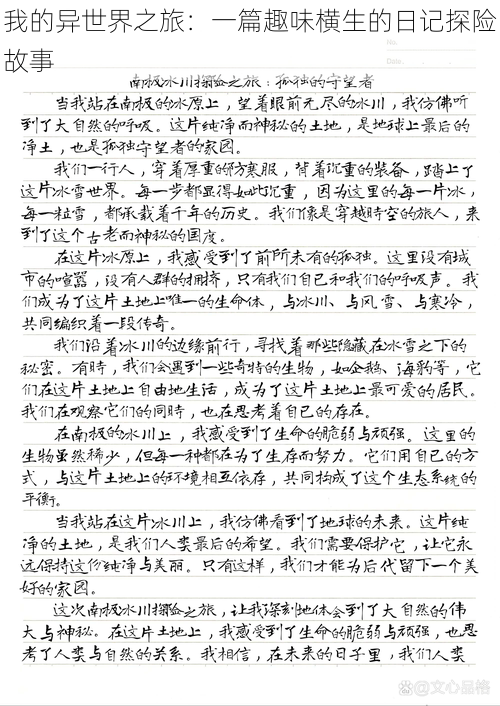 我的异世界之旅：一篇趣味横生的日记探险
故事
No.
Date.
南极冰川探险之旅：孤独的守望者
当我站在南极的冰原上，望着眼前无尽的冰川，我仿佛听
到了大自然的呼吸。这片纯净而神秘的土地，是地球上最后的
净土，也是孤独守望者的家园。
我们一行人，穿着厚重的防寒服，背着沉重的装备，踏上了
这片冰雪世界。每一步都显得如此沉重，因为这里的每一片冰，
每一粒雪，都承载着千年的历史。我们像是穿越时空的旅人，来
到了这个古老而神秘的国度。
在这片冰原上，我感受到了前所未有的孤独。这里没有城
市的喧嚣，没有人群的拥挤，只有我们自己和我们的呼吸声。我
们成为了这片土地上唯一的生命体，与冰川、与风雪、与寒冷，
共同编织着一段传奇。
我们沿着冰川的边缘前行，寻找着那些隐藏在冰雪之下的
秘密。有时，我们会遇到一些奇特的生物，如企鹅、海豹等，它
们在这片土地上自由地生活，成为了这片土地上最可爱的居民。
我们在观察它们的同时，也在思考着自己的存在。
在南极的冰川上，我感受到了生命的脆弱与顽强。这里的
生物虽然稀少，但每一种都在为了生存而努力。它们用自己的方
式，与这片土地上的环境相互依存，共同构成了这个生态系统的
平衡。
当我站在这片冰川上，我仿佛看到了地球的未来。这片纯
净的土地，是我们人类最后的希望。我们需要保护它，让它永
远保持这份纯净与美丽。只有这样，我们才能为后代留下一个美
好的家园。
这次南极冰川探险之旅，让我深刻地体会到了大自然的伟
大与神秘。在这片土地上，我感受到了生命的脆弱与顽强，也思
考了人类与自然的关系。我相信，在未来的日子里，我们人类
@文心品格